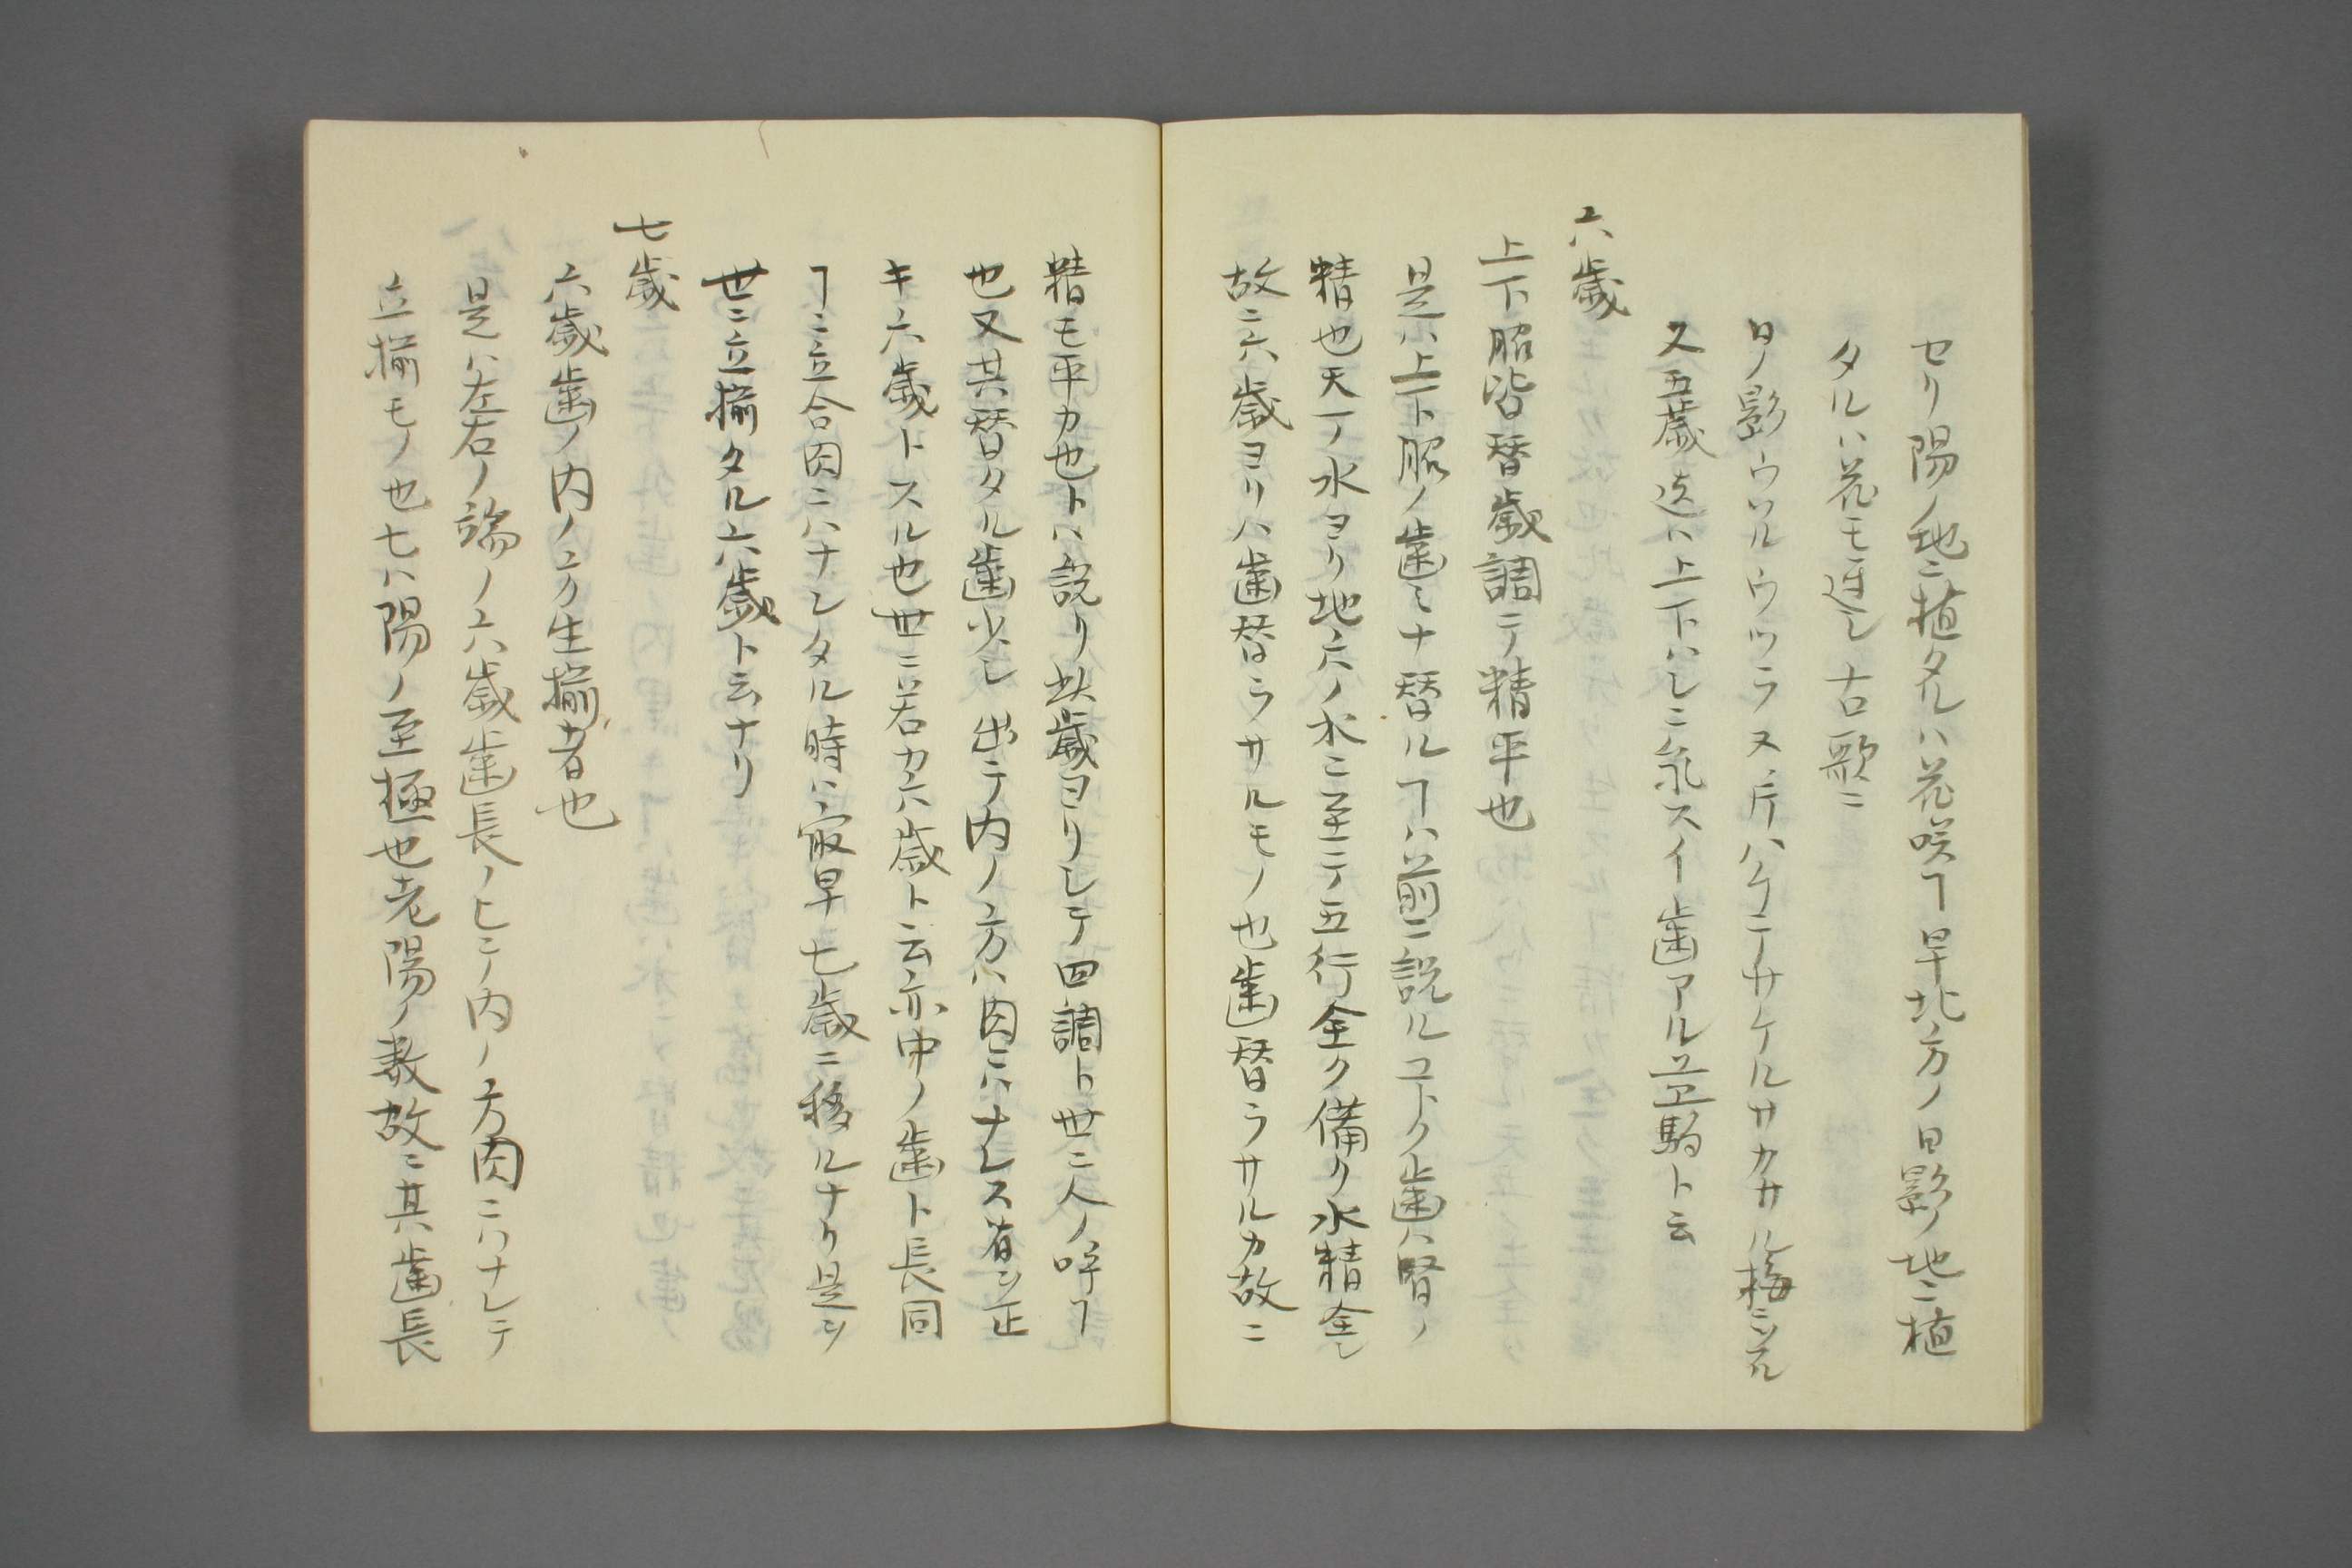 セリ陽ノ地ニ植タルハ花咲ヿ早北方ノ日影ノ地ニ植
タルハ花モ遅シ古歌ニ
日ノ影ウツルウツラヌ片ハケニテサケルサカサル梅ミツル
又五歳迄ハ上下ハシニ糸スイ歯アル立駒ト云
六歳
上下𦚰皆替歳調テ精平也
是ハ上下𦚰ノ歯ミナ替ルヿハ前ニ説ルコトク歯ハ腎ノ
精也天一ノ水ヨリ地六ノ水ニ至テ五行全ク備ク水精全シ
故ニ六歳ヨリハ歯替ラサルモノ也歯替ラサルカ故ニ
精モ平カ也トハ説リ此歳ヨリシテ四調ト世ニ人ノ呼ヿ
也又其替タル歯少シ出テ内ノ方ハ肉ニハナレス有ヲ正
キ六歳トスル也世ニ若カ六歳ト云亦中ノ歯ト長同
ヿニ立合肉ニハナレタル時ハ最早七歳ニ移ルナリ是ヲ
世ニ立揃タル六歳ト云ナリ
七歳
六歳歯ノ内ノ方生揃者也
是ハ左右ノ端ノ六歳歯長ノヒテ内ノ方肉ニハナレテ
立揃モノ也七ハ陽ノ至極也老陽ノ数故ニ其歯長